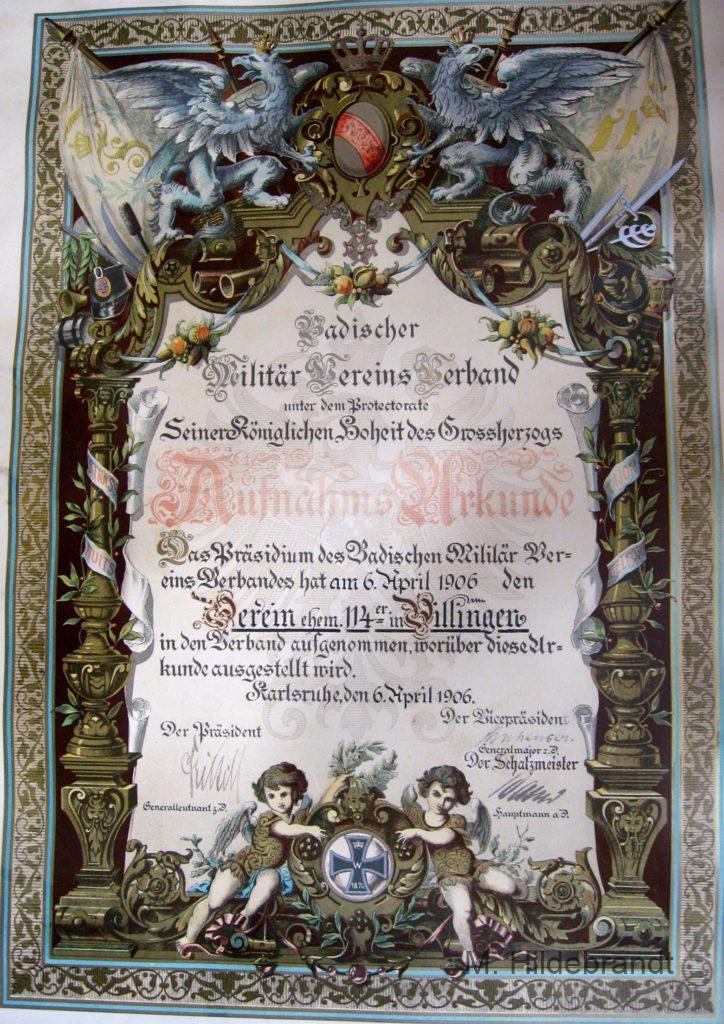 Badischer
Militär Vereins Verband
unter dem Protectorate
Seiner Königlichen Hoheit des Grossherzogs
Aufnahms Urkunde
Das Präsidium des Badischen Militär Ver-
eins Verbandes hat am 6. April 1906 den
Verein ehem. 114er. in Villingen
in den Verband aufgenommen, worüber diese Ur-
kunde ausgestellt wird.
Karlsruhe, den 6. April 1906.
Der Präsident
Der Vicepräsident
Generalmajor z. D.
Der Schatzmeister
Generalleutnant z. D.
Hauptmann a. D.
W
1870
M. Hildebrandt